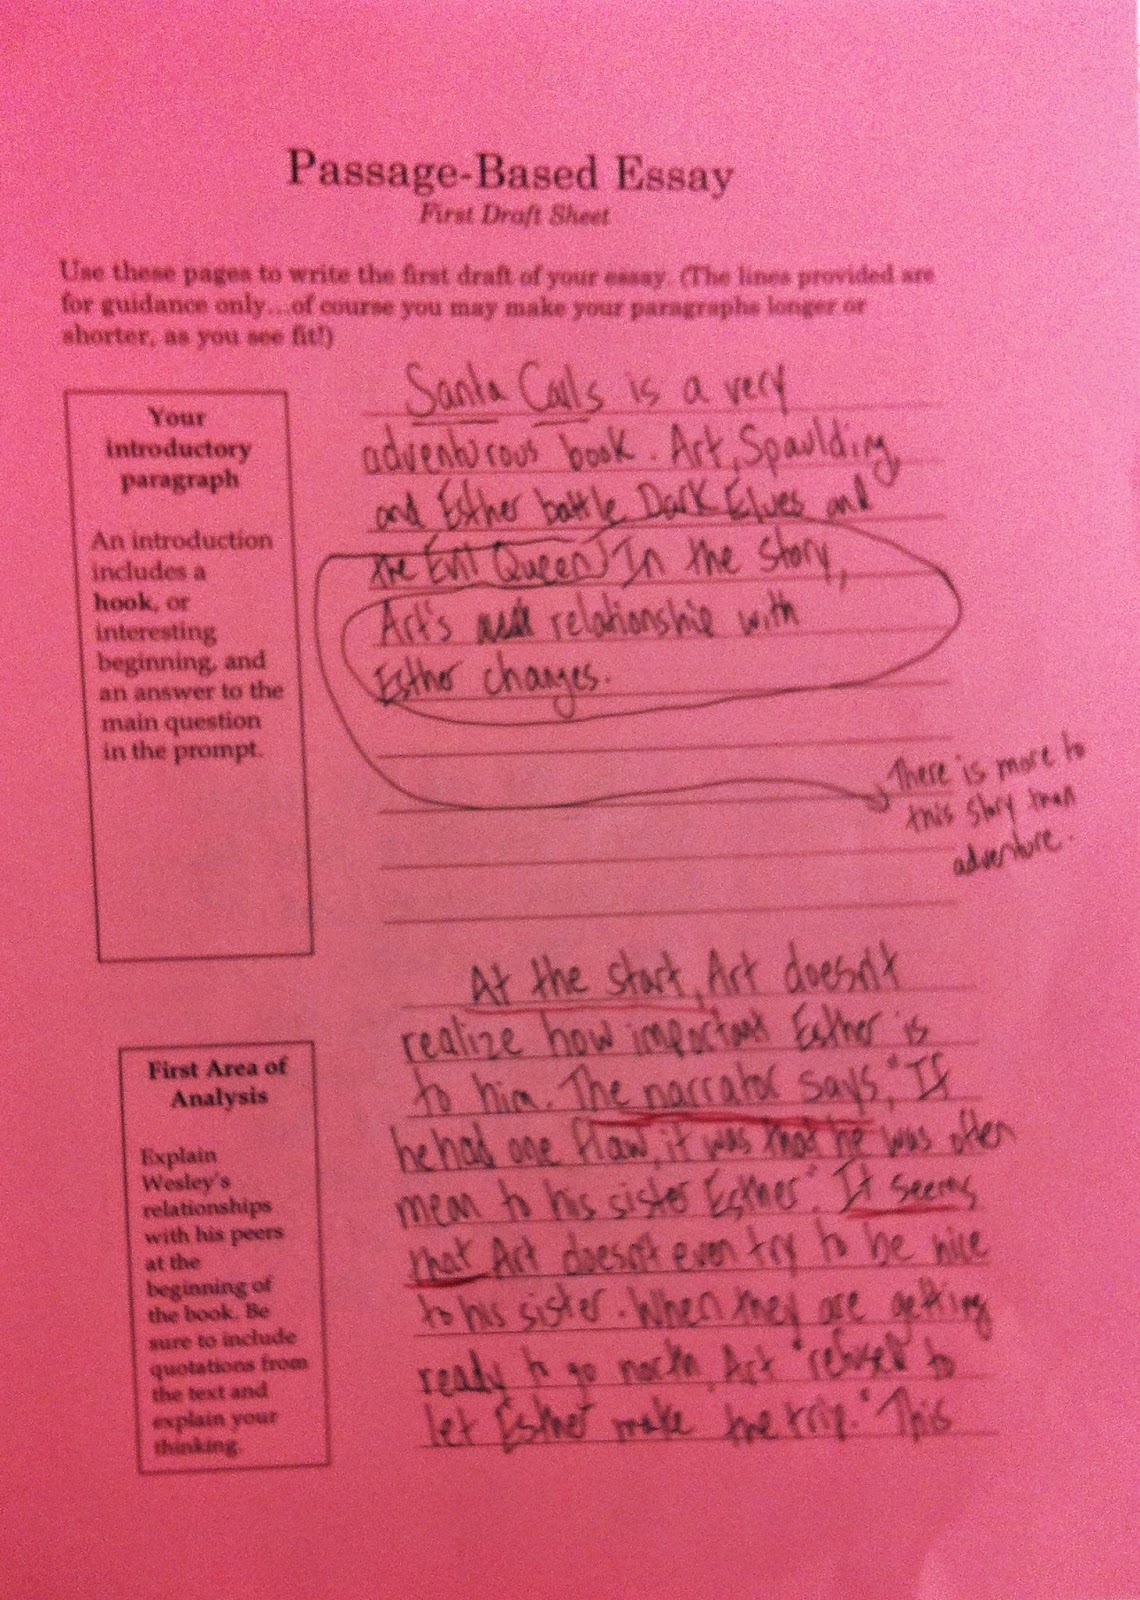 Passage-Based Essay
First Draft Sheet
Use these pages to write the first draft of your essay. (The lines provided are
for guidance only...of course you may make your paragraphs longer or
shorter, as you see fit!)
Your
introductory
paragraph
An introduction
includes a
hook, or
interesting
beginning, and
an answer to the
main question
in the prompt.
Santa Calls is a very
adventurous book. Art, Spaulding,
and Esther battle Dark Elves and
the Evil Queen In the story,
Art's relationship with
Esther changes.
There is more to
this story than
adventure.
First Area of
Analysis
Explain
Wesley's
relationships
with his peers
at the
beginning of
the book. Be
sure to include
quotations from
the text and
explain your
thinking.
At the start, Art doesn't
realize how important Esther is
to him. The narrator says, "If
he had one flaw, it was that he was often
mean to his sister Esther". It seems
that Art doesn't even try to be nice
to his sister. When they are getting
ready to go north, Art "refused to
let Esther make the trip." This